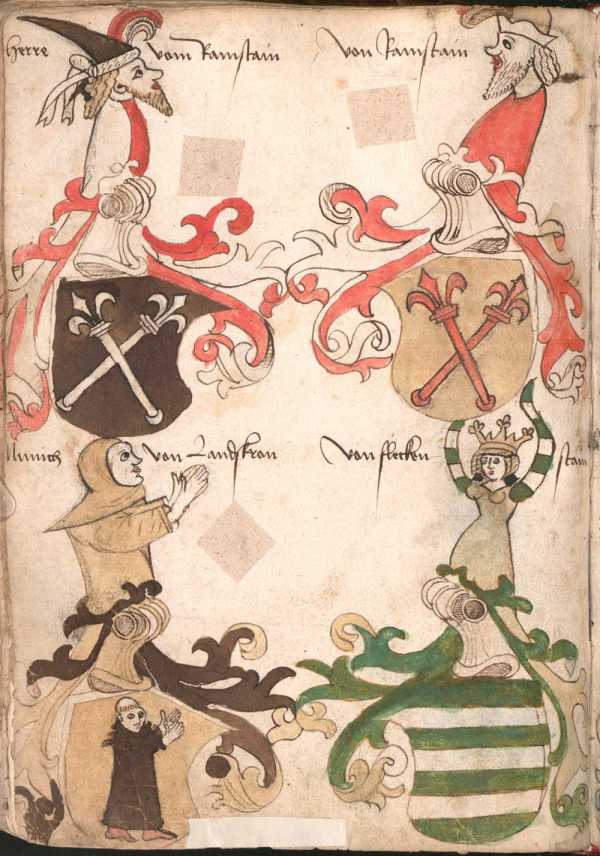 Herre vom Ramstain
Von Ramstain
Münich von Landskron
Von flecken stain